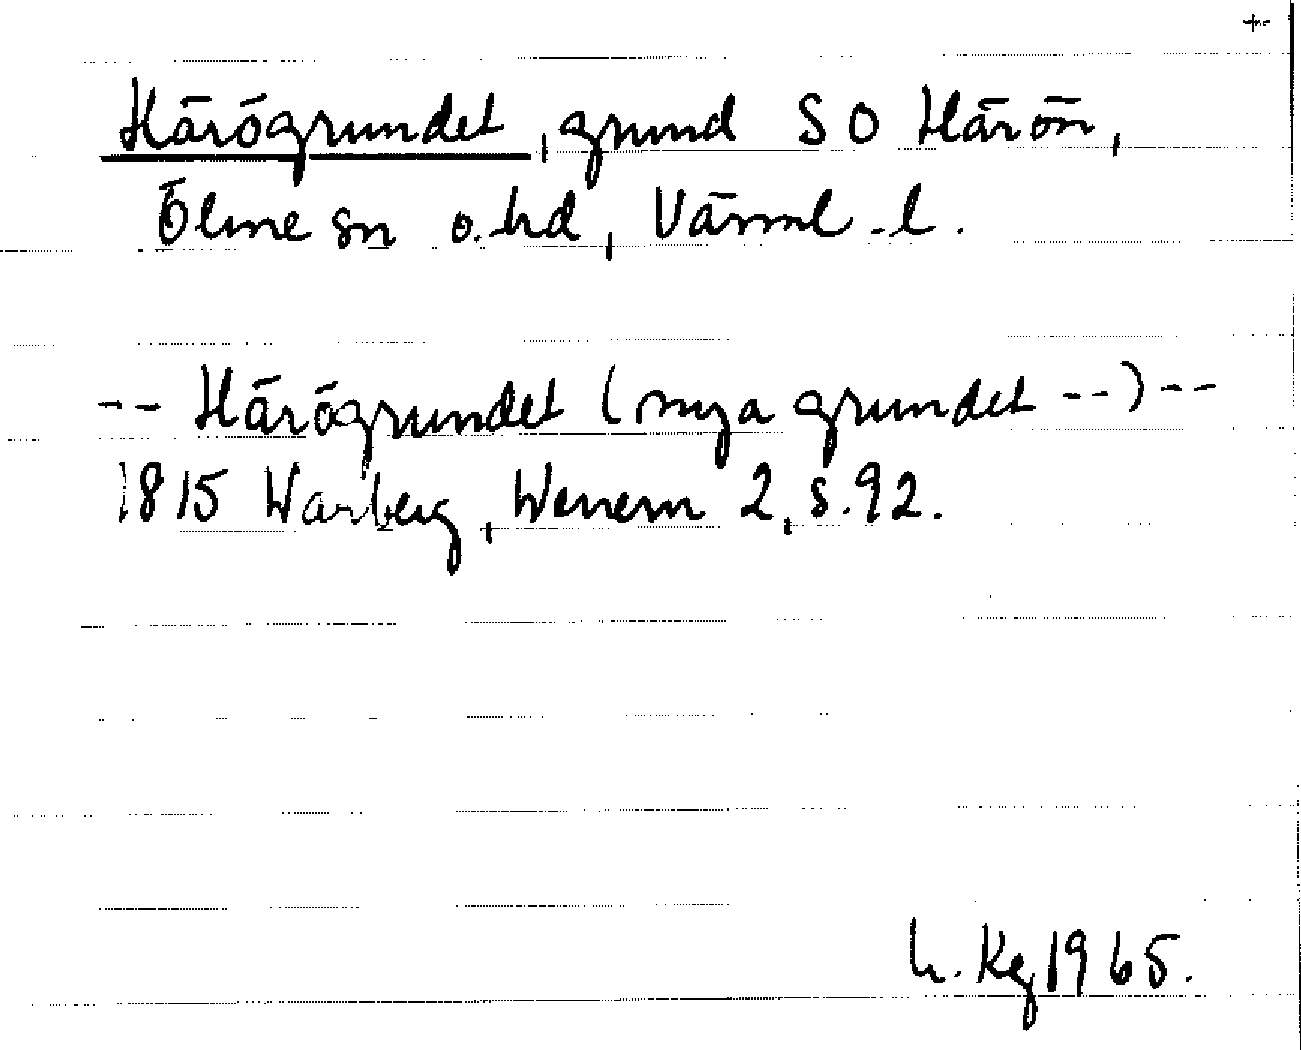 Härögrundet, grund SO Härön,
Ölme sn o. hd, Värml. l.
-- Härögrundet (nya grundet --) --
1815 Warberg, Wenern 2, s. 92.
h. Kg 1965.